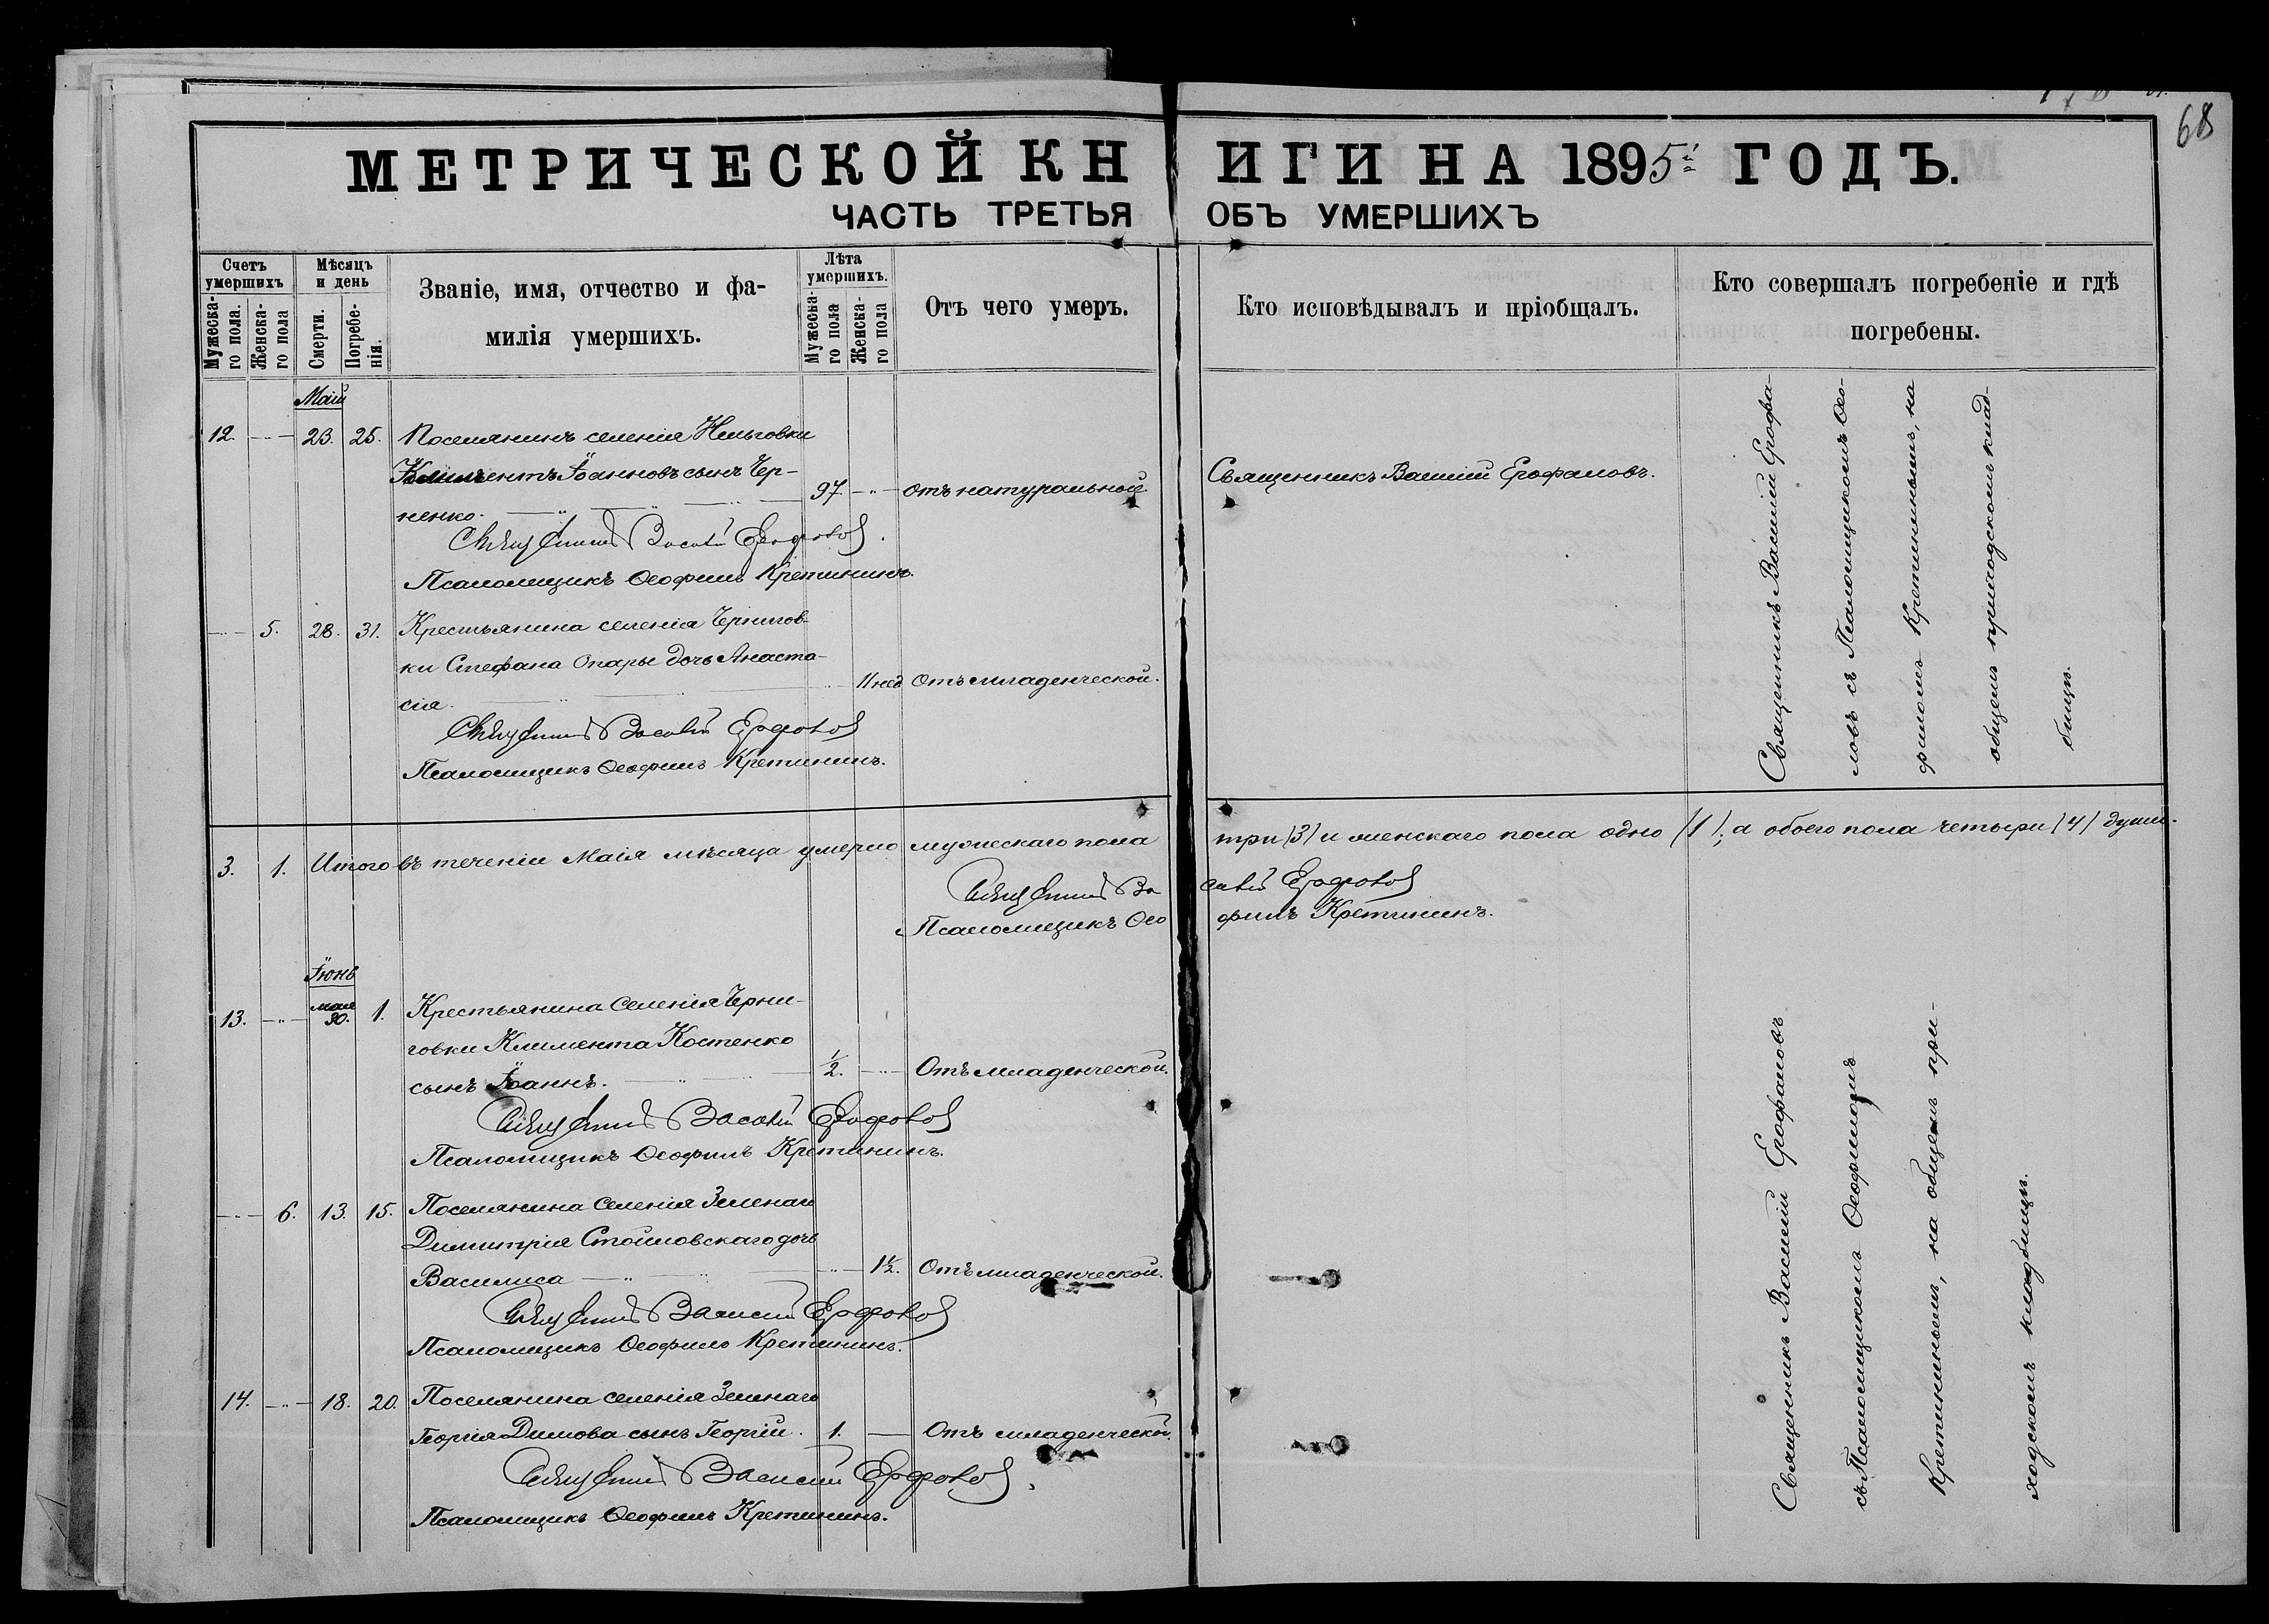 68
МЕТРИЧЕСКОЙ КНИГИ НА 1895й ГОДЪ.
ЧАСТЬ ТРЕТЬЯ ОБЪ УМЕРШИХЪ
Счетъ умершихъ
Мужеска-го пола.
Женска-го пола
Мѣсяцъ и день
Смерти.
Погребе-нія.
Званіе, имя, отчество и фа-
милія умершихъ.
Лѣта умершихъ.
Мужеска-го пола
Женска-го пола
Отъ чего умеръ.
Кто исповѣдывалъ и пріобщалъ.
Кто совершалъ погребеніе и гдѣ
погребены.
Маій
12. 23. 25. Поселянинъ селенія Нельговки
Климентъ Іоанновъ сынъ Чер-
ненко. 97. отъ натуральной. Священникъ Василій Ерофаловъ.
Священникъ Василій Ерофаловъ.
Псаломщикъ Ѳеофилъ Кретининъ.
5. 28. 31. Крестьянина селенія Чернигов-
ки Стефана Опары дочь Анаста-
сія. 11 нед Отъ младенческой.
Священникъ Василій Ерофаловъ
Псаломщикъ Ѳеофилъ Кретининъ.
Священникъ Василій Ерофа-
ловъ съ Псаломщикомъ Ѳео-
филомъ Кретининымъ, на
общемъ приходскомъ клад-
бищѣ.
3. 1. Итого въ теченіи Маія мѣсяца умерло мужескаго пола три (3) и женскаго пола одно (1), а обоего пола четыри (4) души.
Священникъ Василій Ерофаловъ
Псаломщикъ Ѳеофилъ Кретининъ.
Іюнь
13. мая 30. 1. Крестьянина Селенія Черни-
говки Климента Костенко
сынъ Іоаннъ. 1/2. Отъ младенческой.
Священникъ Василій Ерофаловъ
Псаломщикъ Ѳеофилъ Кретининъ.
6. 13. 15. Поселянина Селенія Зеленаго
Димитрія Стойловскаго дочь
Василиса 1 1/2. Отъ младенческой.
Священникъ Василій Ерофаловъ
Псаломщикъ Ѳеофилъ Кретининъ.
14. 18. 20. Поселянина селенія Зеленаго
Георгія Димова сынъ Георгій. 1. Отъ младенческой.
Священникъ Василій Ерофаловъ.
Псаломщикъ Ѳеофилъ Кретининъ.
Священникъ Василій Ерофаловъ
съ Псаломщикомъ Ѳеофиломъ
Кретининымъ, на общемъ при-
ходскомъ кладбищѣ.